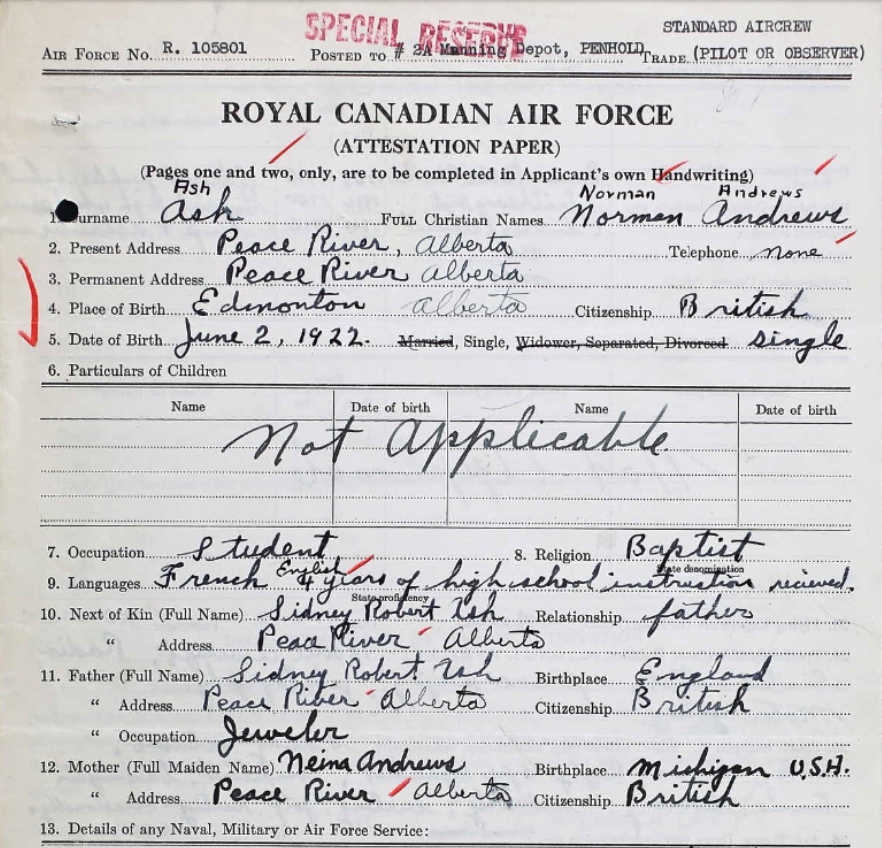 SPECIAL RESERVE
STANDARD AIRCREW
AIR FORCE NO. R. 105801 POSTED TO # 2A Manning Depot, PENHOLD TRADE (PILOT OR OBSERVER)
ROYAL CANADIAN AIR FORCE
(ATTESTATION PAPER)
(Pages one and two, only, are to be completed in Applicant's own Handwriting)
Ash Norman Andrews
1. Surname Ash FULL Christian Names Norman Andrews
2. Present Address Peace River, Alberta Telephone none
3. Permanent Address Peace River Alberta
4. Place of Birth Edmonton Alberta Citizenship British
5. Date of Birth June 2, 1922. Married, Single, Widower, Separated, Divorced single
6. Particulars of Children
Name Date of birth Name Date of birth
Not Applicable
7. Occupation Student 8. Religion Baptist
English State denomination
9. Languages French 4 years of high school instruction recieved.
State proficiency
10. Next of Kin (Full Name) Sidney Robert Ash Relationship father
" Address Peace River Alberta
11. Father (Full Name) Sidney Robert Ash Birthplace England
" Address Peace River Alberta Citizenship British
" Occupation Jeweler
12. Mother (Full Maiden Name) Neina Andrews Birthplace Michigan U.S.A.
" Address Peace River Alberta Citizenship British
13. Details of any Naval, Military or Air Force Service: